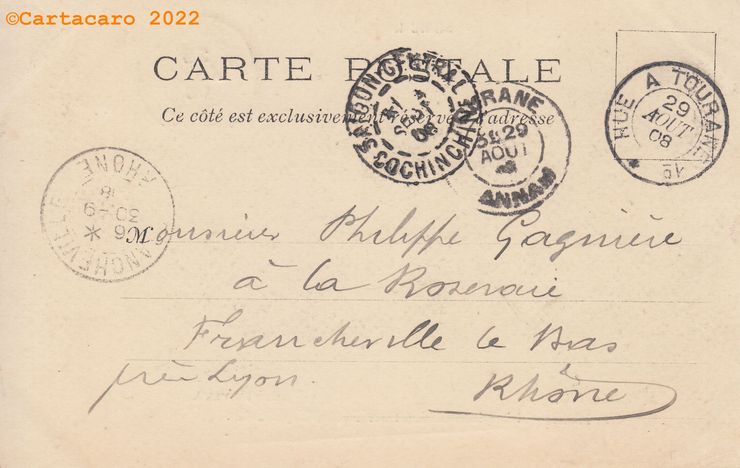 ©Cartacaro 2022
CARTE POSTALE
Ce côté est exclusivement réservé à l'adresse
SAIGON-CENTRAL
1
SEPT
08
COCHINCHINE
TOURANE
29
AOUT
ANNAM
HUE A TOURANE
29
AOUT
08
FRANCHEVILLE
RHONE
6 *
30 -9
M
Monsieur Philippe Gagnière
à la Roseraie
Francheville le Bas
près Lyon.
Rhône